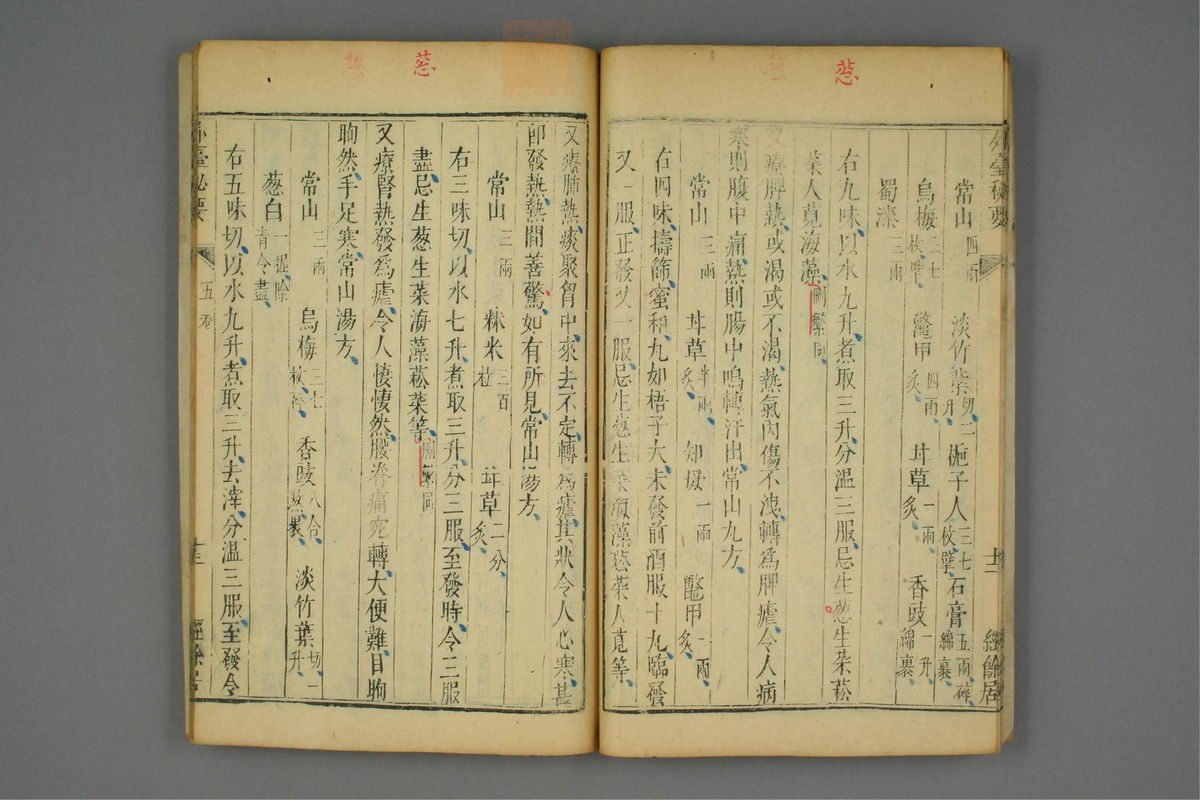 葱
外臺秘要
十二
經餘居
常山四兩 淡竹葉切二升 梔子人三七枚擘 石膏五兩碎綿裹
烏梅二七枚擘 鼈甲四兩炙 甘草一兩炙 香豉一升綿裹
蜀漆三兩
右九味以水九升煮取三升分溫三服忌生葱生菜菘
菜人莧海藻刪繁同
又療脾熱或渴或不渴熱氣內傷不洩轉爲脾瘧令人病
寒則腹中痛熱則腸中鳴轉汗出常山丸方
常山三兩 甘草半兩炙 知母一兩 鼈甲一兩炙
右四味擣篩蜜和丸如梧子大未發前酒服十丸臨發
又一服正發又一服忌生葱生菜海藻菘菜人莧等
葱
又療肺熱痰聚胷中來去不定轉爲瘧其狀令人心寒甚
卽發熱熱間善驚如有所見常山湯方
常山三兩 粳米三百粒 甘草二分炙
右三味切以水七升煮取三升分三服至發時令三服
盡忌生葱生菜海藻菘菜等刪繁同
又療腎熱發爲瘧令人悽悽然腰脊痛宛轉大便難目眴
眴然手足寒常山湯方
常山三兩 烏梅三七枚碎 香豉八合熬裹 淡竹葉切一升
葱白一握除青令盡
右五味切以水九升煮取三升去滓分溫三服至發令
外臺秘要
五卷
十三
經餘居